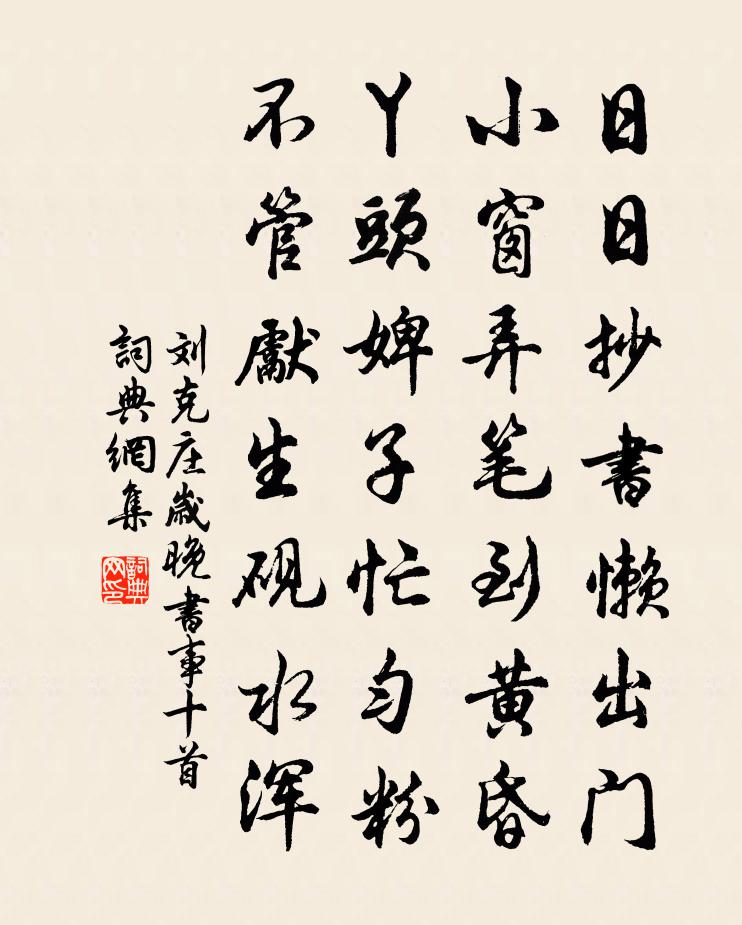 日日抄書懶出门
小窗弄笔到黄昏
丫頭婢子忙匀粉
不管先生砚水浑
刘克庄歲晚書事十首
詞典網集
詞典网印